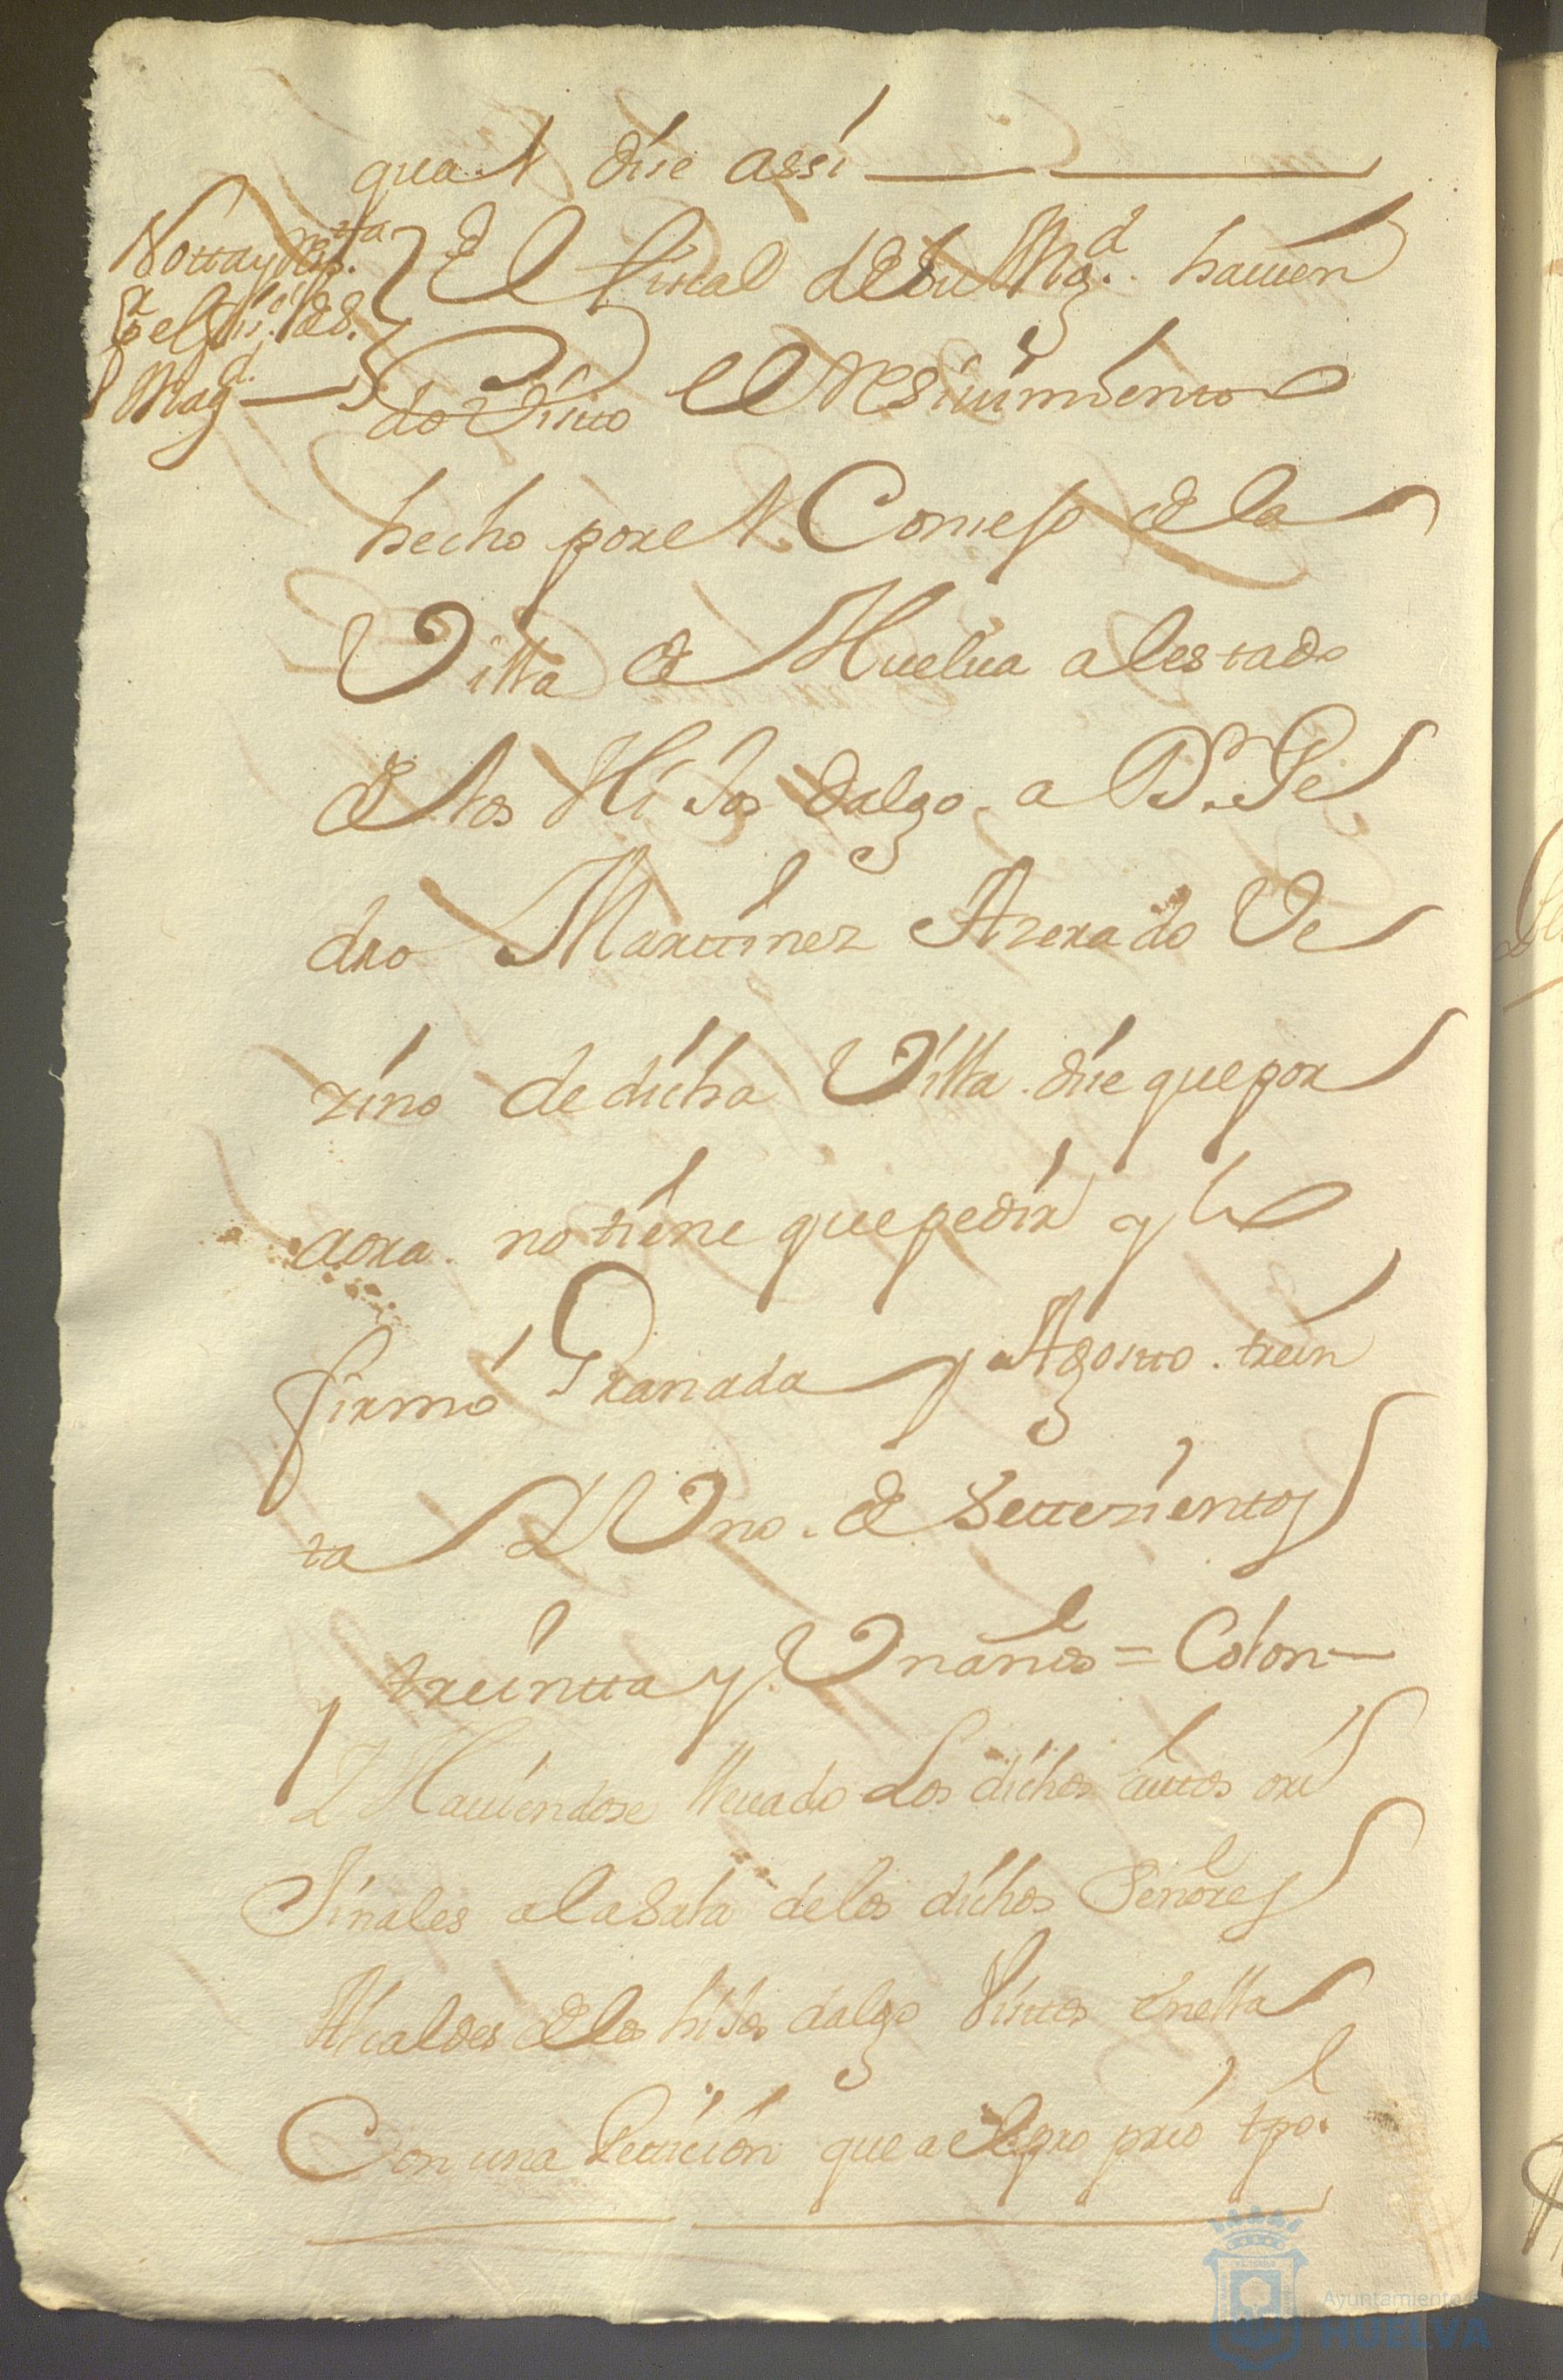 qual dise assi
Notta y Resp.ta
p.r el fis.l de S.
Mag.d
El fiscal de Su Mag.d havien
do Visto el Resiuimiento
hecho por el Consejo de la
Villa de Huelua al estado
de los Hijos dalgo a D.n Pe
dro Martinez Azerado Ve
zino de dicha Villa dise que por
aora no tiene que pedir y lo
firmó Granada y Agosto trein
ta Y Uno de Settezientos
treintta y Un años = Colon
Y Hauiendose lleuado Los dichos auttos ori
Jinales a la Sala de los dichos Señores
Alcaldes de los hijos dalgo Vistos en ella
Con una Petticion que a el pro prio tpo.
Ayuntamiento de
HUELVA